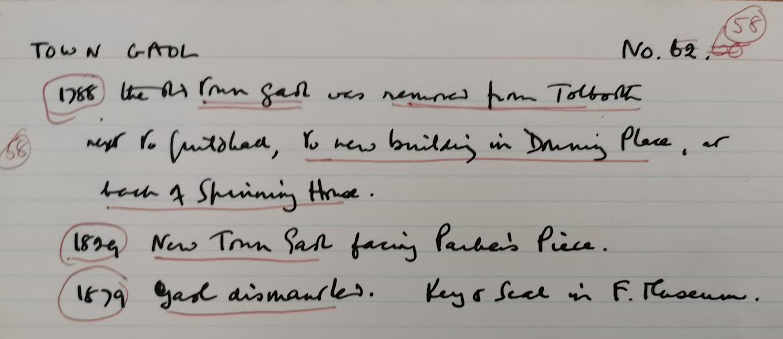 TOWN GAOL No. 62. 58
1788 the old Town Gaol was removed from Tolbooth
58 next to Guildhall, to new building in Downing Place, at
back of Spinning House.
1829 New Town Gaol facing Parker's Piece.
1879 Gaol dismantled. Key & Seal in F. Museum.